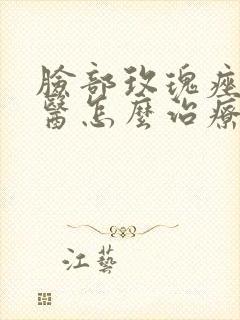 臉部玫瑰痤
醫怎麼治療
江藝